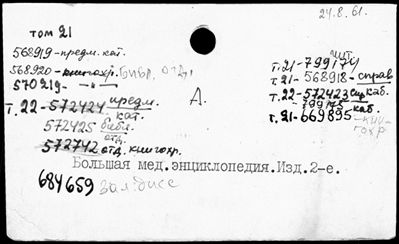 24.8.61.
том 21
568919-предм. кат.
568920-книгохр. библ. отд.
570219- —"—
т. 22-572424 предм. кат.
572425 библ. отд.
572742 отд. книгохр.
А.
чит.
т.21-799174
т.21-568918-справ
т.22-572423 спр каб.
799175 каб.
т.21-669895-кни-
гохр
Большая мед.энциклопедия.Изд.2-е.
684659 зал.дисс